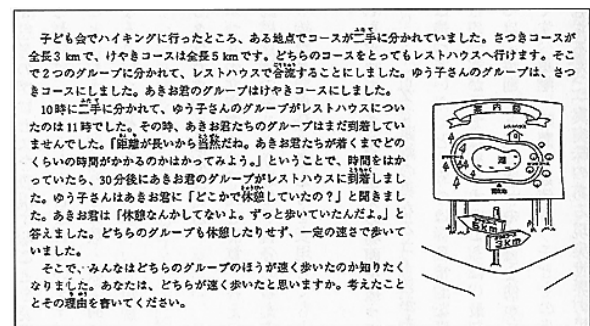 子ども会でハイキングに行ったところ、ある地点でコースが二手に分かれていました。さつきコースが
全長3kmで、けやきコースは全長5kmです。どちらのコースをとってもレストハウスへ行けます。そこ
で2つのグループに分かれて、レストハウスで合流することにしました。ゆう子さんのグループは、さつ
きコースにしました。あきお君のグループはけやきコースにしました。
10時に二手に分かれて、ゆう子さんのグループがレストハウスについ
たのは11時でした。その時、あきお君たちのグループはまだ到着してい
ませんでした。「距離が長いから当然だわ。あきお君たちが着くまでどの
くらいの時間がかかるのかはかってみよう。」ということで、時間をはか
っていたら、30分後にあきお君のグループがレストハウスに到着しまし
た。ゆう子さんはあきお君に「どこかで休憩していたの?」と聞きまし
た。あきお君は「休憩なんかしてないよ。ずっと歩いていたんだよ。」と
答えました。どちらのグループも休憩したりせず、一定の速さで歩いて
いました。
そこで、みんなはどちらのグループのほうが速く歩いたのか知りたく
なりました。あなたは、どちらが速く歩いたと思いますか。考えたこと
とその理由を書いてください。
案内図
湖
5km
3km